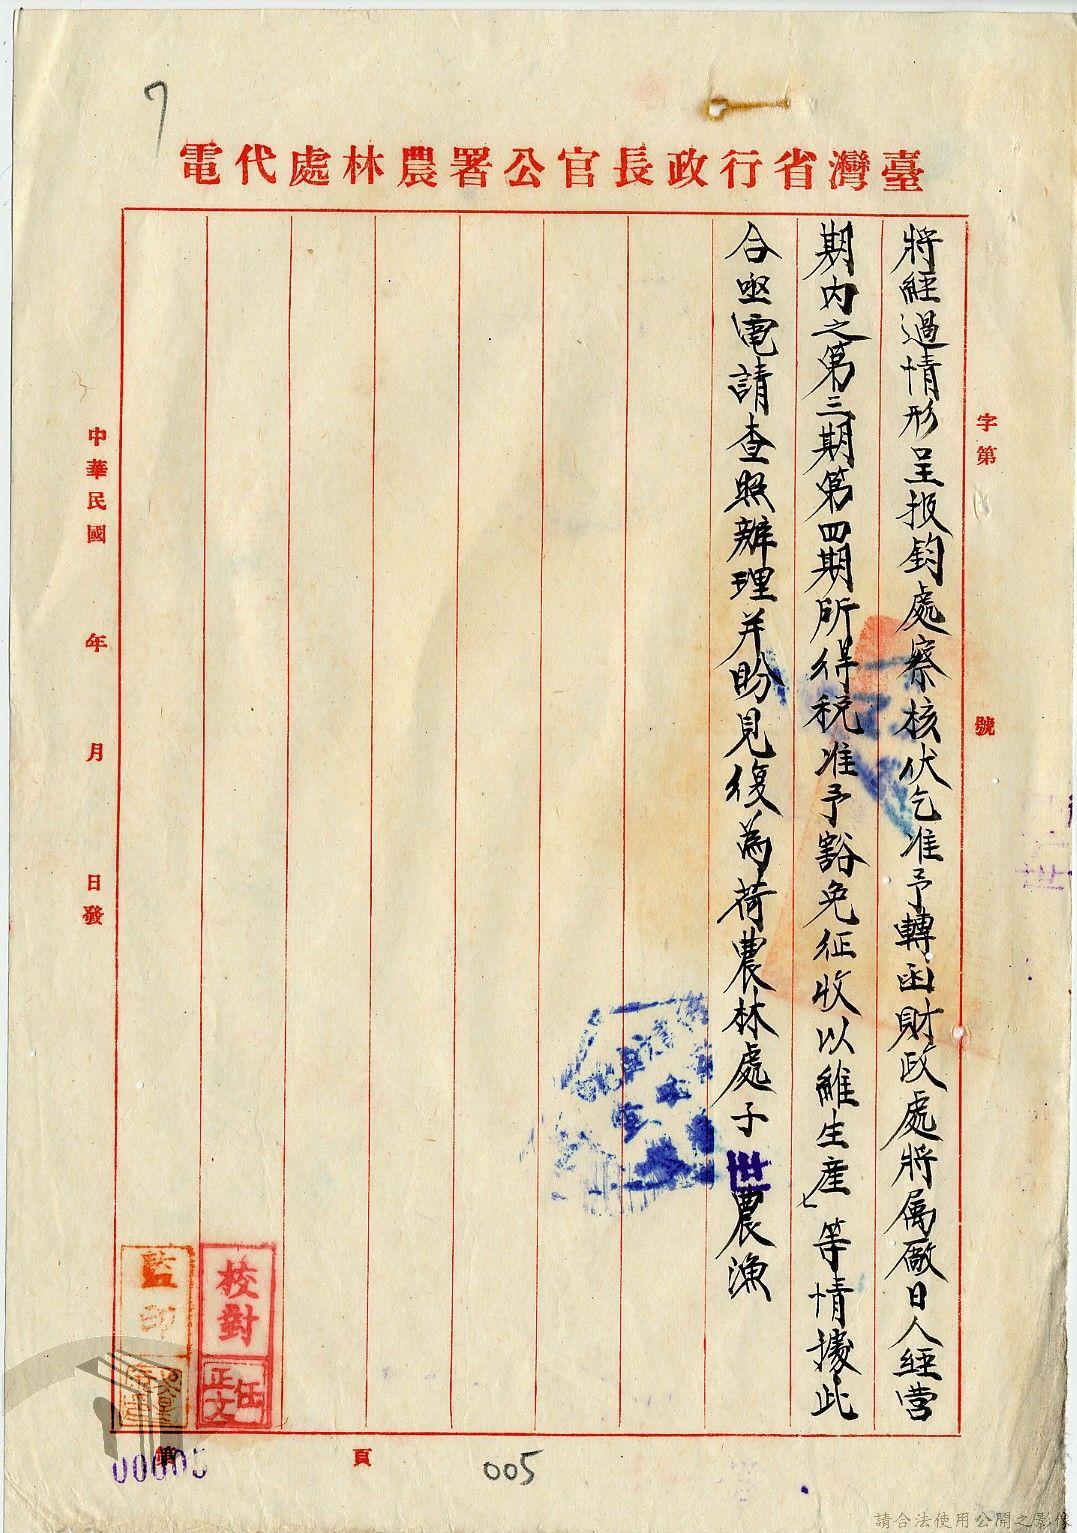 7
臺灣省行政長官公署農林處代電
字第
號
將經過情形呈报鈞處察核伏乞准予轉函財政處將属廠日人経营
期内之第三期第四期所得税准予豁免征收以維生産等情據此
合亟電請查照辦理并盼見復為荷農林處子世農漁
中華民國
年
月
日發
校對
任正文
監印
第
頁
00005
005
請合法使用公開之影像